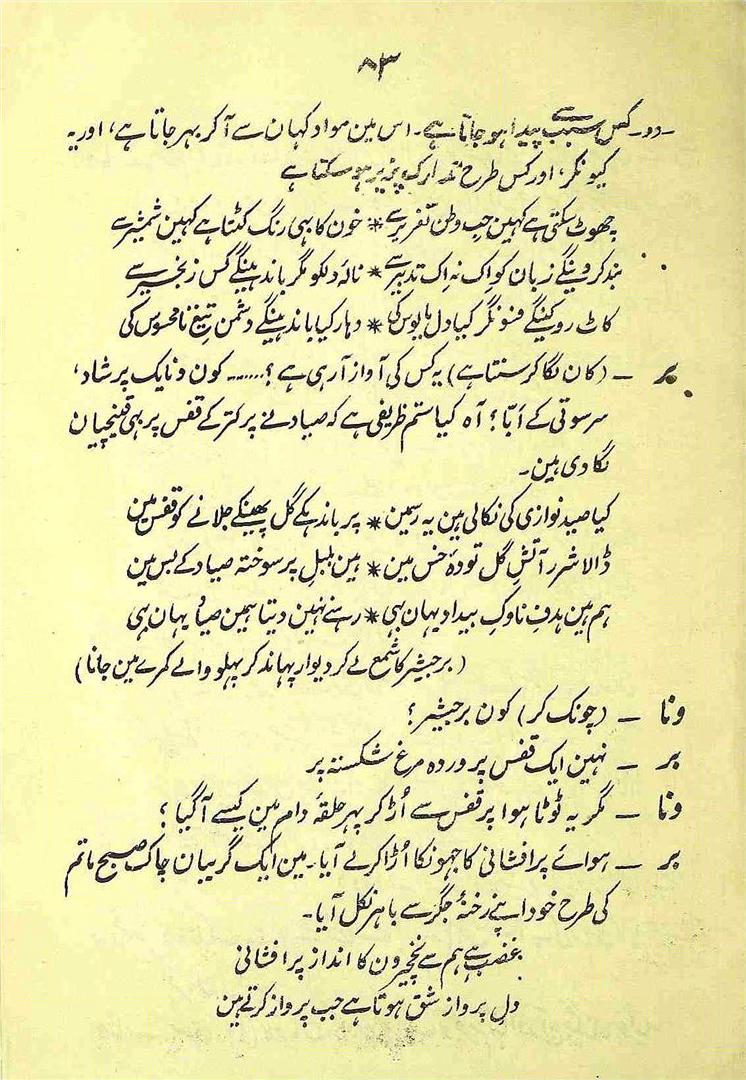 ۸۳
دو۔ کس سبب سے پیدا ہو جاتا ہے۔ اس مین مواد کہان سے آ کر بہر جاتا ہے، اور یہ
کیونکر، اور کس طرح تدارک پزیر ہو سکتا ہے
چھوٹ سکتی ہے کہین حب وطن تعزیر سے * خون کا بہی رنگ کٹتا ہے کہین شمشیر سے
بند کر دینگے زبان کو اک نہ اک تدبیر سے * نالۂ دلکو مگر باندہینگے کس زنجیر سے
کاٹ روکینگے فسونگر کیا دل مایوس کی * دہار کیا باندہینگے دشمن تیغ نا محسوس کی
بر ۔ (کان لگا کر سنتا ہے) یہ کس کی آواز آ رہی ہے؟ ...... کون ونایک پرشاد،
سرسوتی کے ابّا؟ آہ کیا ستم ظریفی ہے کہ صیاد نے پر کتر کے قفس پر بہی قینچیان
لگا دی ہین۔
کیا صید نوازی کی نکالی ہین یہ رسمین * پر باندہکے گل پھینکے جلانے کو قفس مین
ڈالا شرر آتشِ گل تودۂ خس مین * ہین بلبل پر سوختہ صیاد کے بس مین
ہم ہین ہدفِ ناوکِ بیداد یہان بہی * رہنے نہین دیتا ہمین صیاد یہان بہی
(برجیشر کا شمع لے کر دیوار پہاند کر پہلو والے کمرے مین جانا)
ونا ۔ (چونک کر) کون برجیشر؟
بر ۔ نہین ایک قفس پروردہ مرغ شکستہ پر
ونا ۔ مگر یہ ٹوٹا ہوا پر قفس سے اُڑ کر پہر حلقۂ دام مین کیسے آ گیا؟
بر ۔ ہوائے پر افشانی کا جہونکا اُڑا کر لے آیا۔ مین ایک گریبان چاک صبح ماتم
کی طرح خود اپنے رخنۂ جگر سے باہر نکل آیا۔
غضب ہے ہم سے نخچیرون کا انداز پر افشانی
دلِ پرواز شق ہوتا ہے جب پرواز کرتے ہین